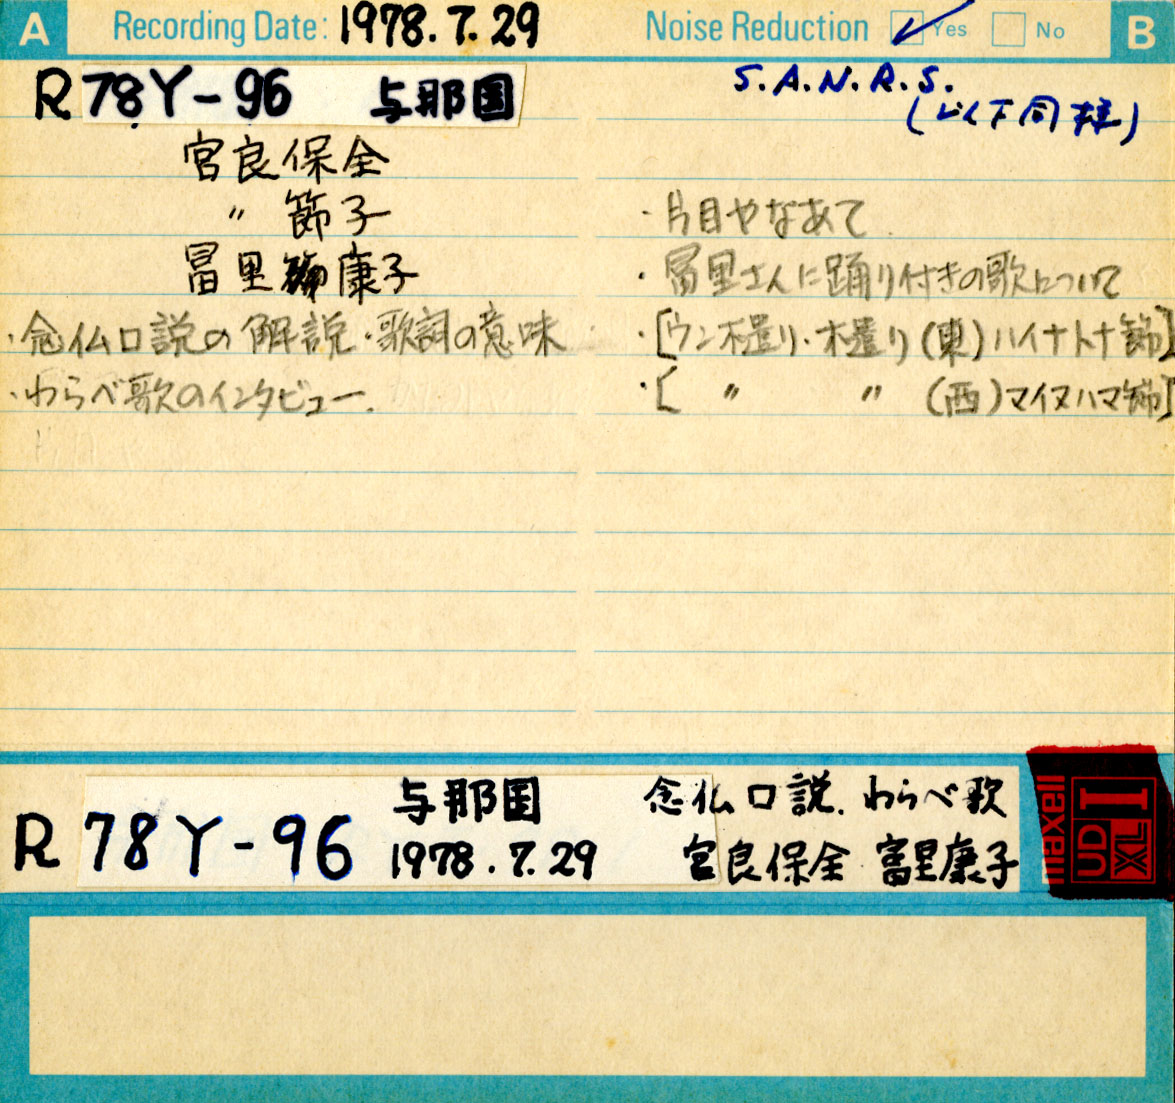 A Recording Date: 1978.7.29 Noise Reduction Yes No B
R78Y-96 与那国
S.A.N.R.S.
(以下同様)
宮良保全
〃 節子
冨里 康子
・念仏口説の解説・歌詞の意味
・わらべ歌のインタビュー.
・片目やなあて
・冨里さんに踊り付きの歌について
・[ウン木遣り・木遣り(東)ハイナトナ節]
・[ 〃 〃 (西)マイヌハマ節]
R 78Y-96 与那国 念仏口説. わらべ歌
1978.7.29 宮良保全 富里康子
maxell UDXL I